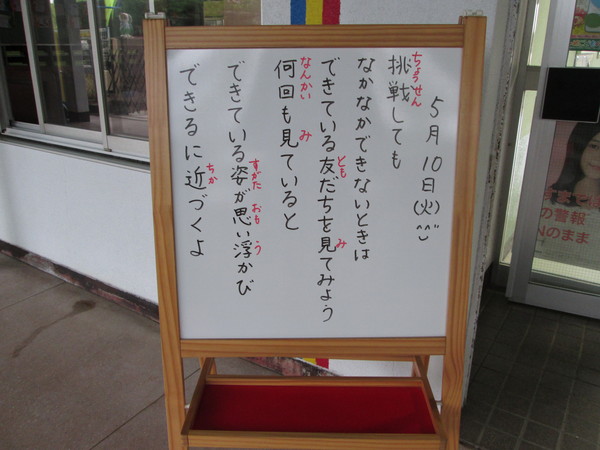 5月10日(火)^^
挑戦しても
ちょうせん
なかなかできないときは
できている友だちを見てみよう
とも
み
何回も見ていると
なんかい
み
できている姿が思い浮かび
すがた
おも
う
できるに近づくよ
ちか
の警報
Nのまま